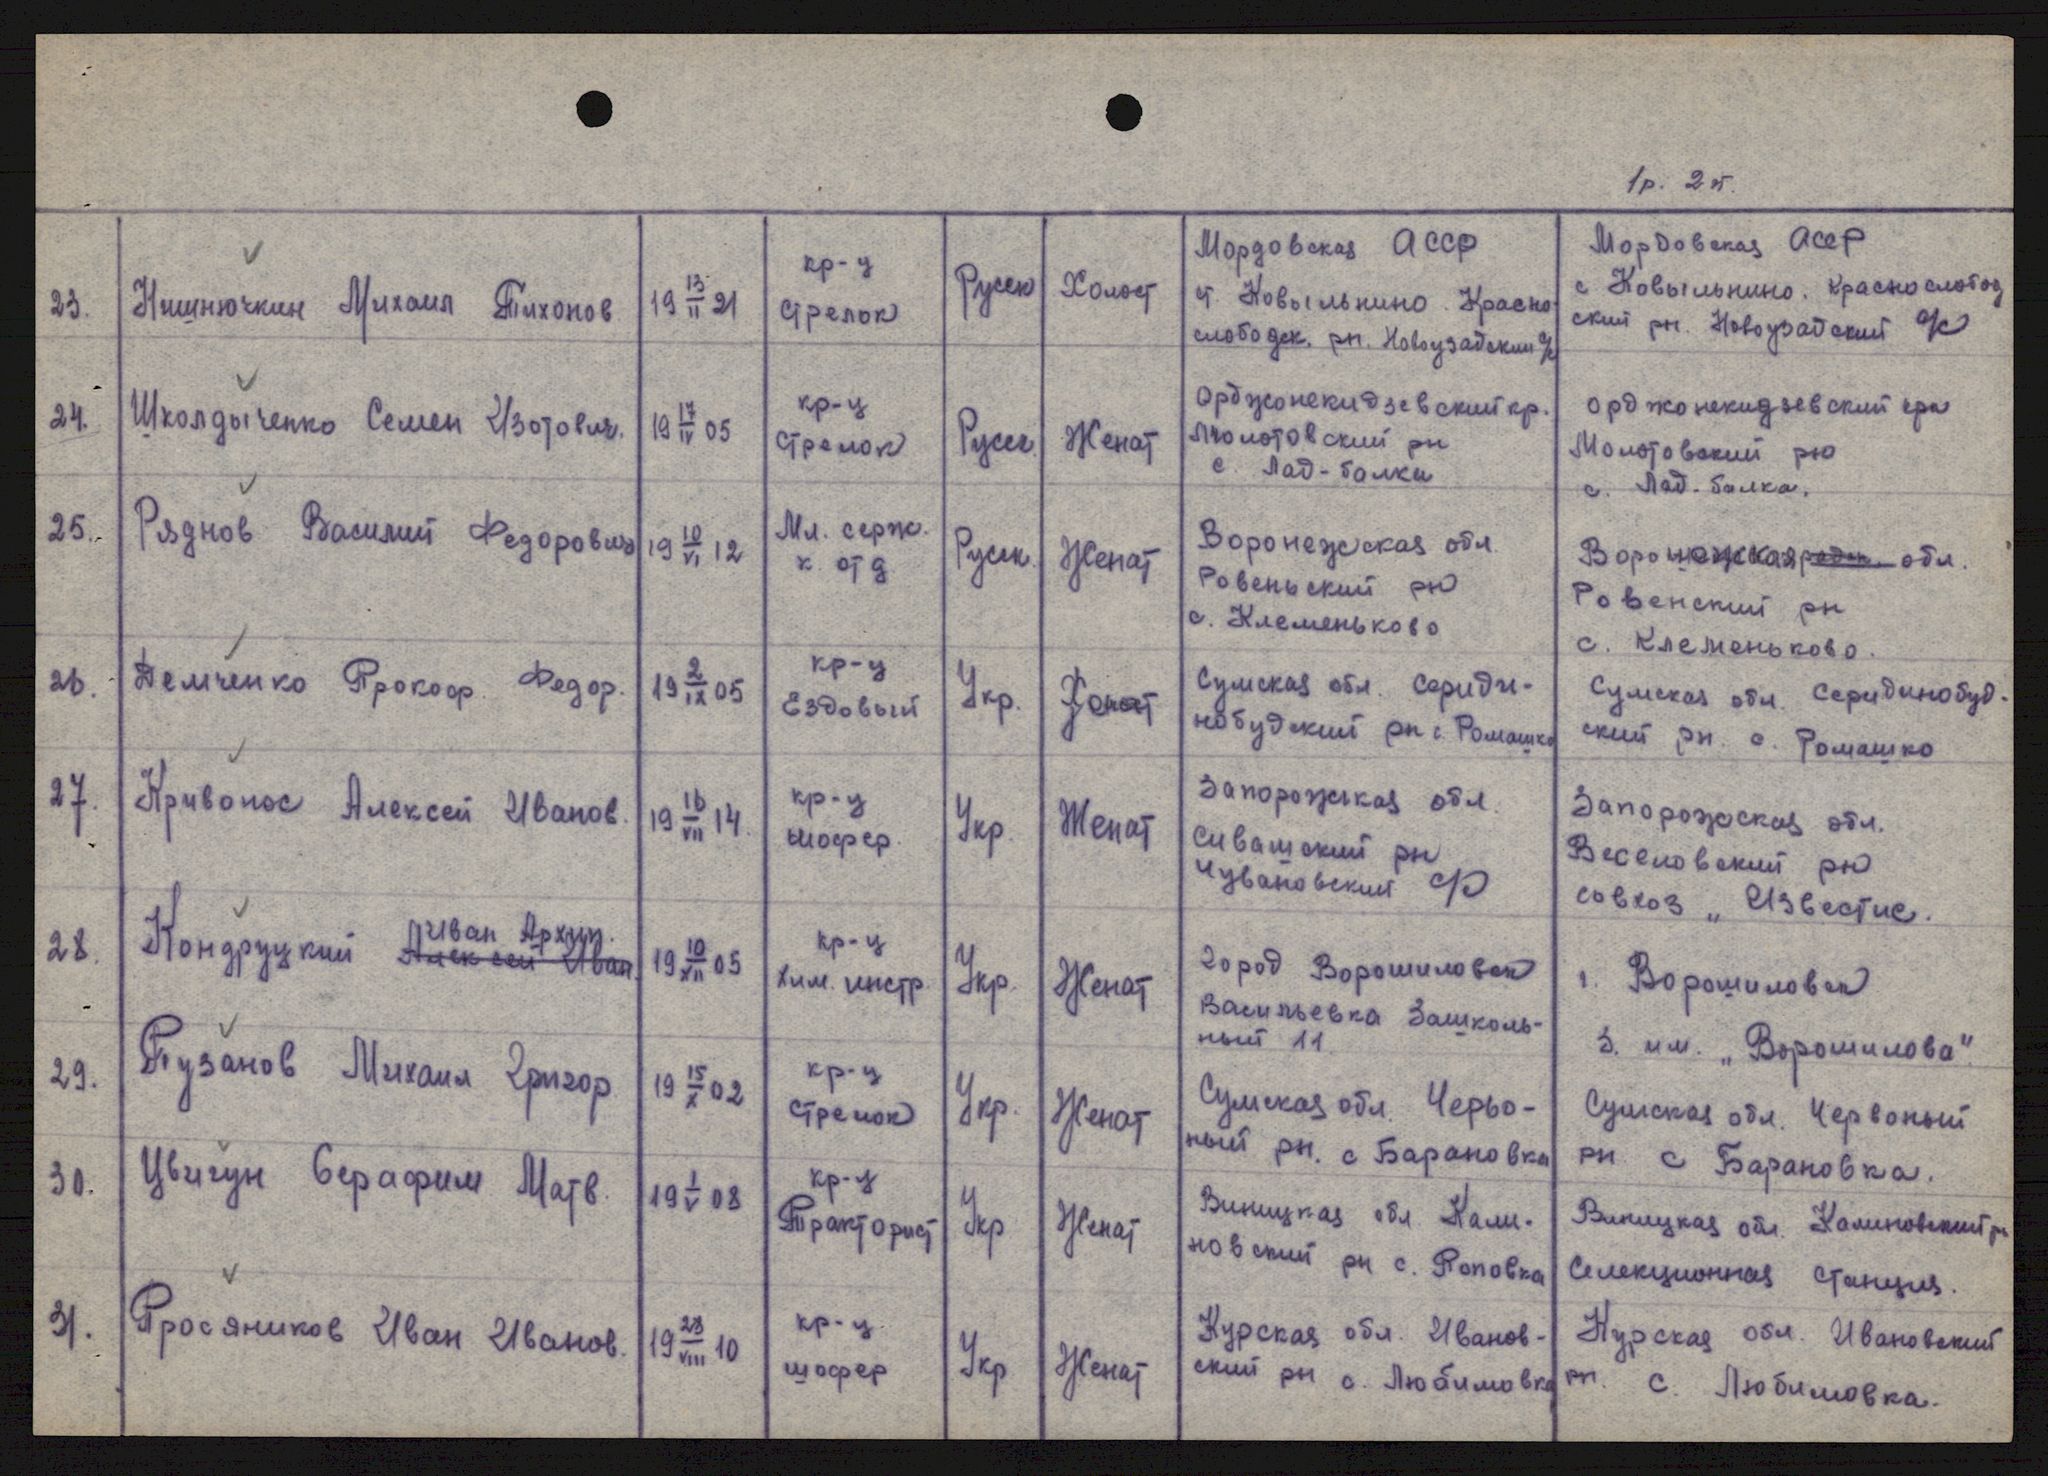 1р. 2 п.
23. Кишнючкин Михаил Тихонов 19 13/II 21 кр-ц Русск Холост Мордовская АССР Мордовская АССР
стрелок ст. Ковыльнино. Красно- с Ковыльнино. Краснослобод
слободск. рн. Новоузайский с/с ский рн. Новоузайский с/с
24. Школдыченко Семен Изотович. 19 17/IV 05 кр-ц Русск. Женат Орджонекидзевский кр. орджонекидзевский кра
стрелок Молотовский рн Молотовский рн
с. Лад-балка с. Лад-балка.
25. Ряднов Василий Федорович 19 10/VI 12 Мл. серж. Русск. Женат Воронежская обл. Воронежская обл.
к отд Ровеньский рн Ровенский рн
с. Клеменьково с. Клеменьково.
26. Демченко Прокоф. Федор. 19 2/IX 05 кр-ц Укр. Сумская обл. Середи- Сумская обл. Серединобуд-
Ездовый нобудский рн с. Ромашко ский рн. с. Ромашко
27. Кривонос Алексей Иванов. 19 16/VII 14. кр-ц Укр. Женат Запорожская обл. Запорожская обл.
шофер. Сивашский рн Веселовский рн
Чувановский с/с совхоз „Известие.
28. Кондруцкий Алексей Иван. Иван Архип. 19 10/XII 05 кр-ц Укр. Женат город Ворошиловск г. Ворошиловск
хим. инстр. Васильевка Зашколь- З. им. „Ворошилова"
ный 11.
29. Пузанов Михаил Григор 19 15/X 02 кр-ц Укр. Женат Сумская обл. Черво- Сумская обл. Червоный
стрелок ный рн. с Барановка рн с Барановка.
30. Цвигун Серафим Матв. 19 1/V 08 кр-ц Укр Женат Виницкая обл Кали- Виницкая обл. Калиновский рн
Тракторист новский рн с. Поповка Селекционная станция.
31. Просяников Иван Иванов. 19 28/VIII 10 кр-ц Укр Женат Курская обл. Иванов- Курская обл. Ивановский
шофер ский рн с. Любимовка рн. с. Любимовка.